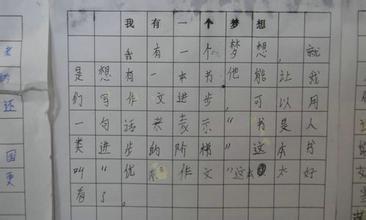 我有一个梦想
我有一个梦想，就
是想有一本书他能让我
们写作文进步，可以用
一句话来表示“书是人
类进步的阶梯”这本书
叫“优 作文”这 太好
有了。
还
国
更